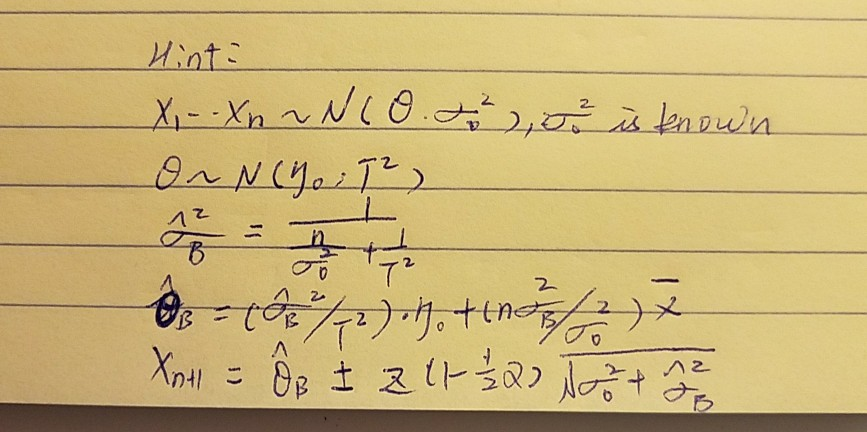 Hint:
X₁--Xₙ ~ N(θ.σ₀²), σ₀² is known
θ ~ N(η₀, T²)
σ̂_B² = 1 / (n/σ₀² + 1/T²)
θ̂_B = (σ̂_B²/T²)·η₀ + (nσ_B²/σ₀²) x̄
Xₙ₊₁ = θ̂_B ± z(1-½α) √(σ₀² + σ̂_B²)